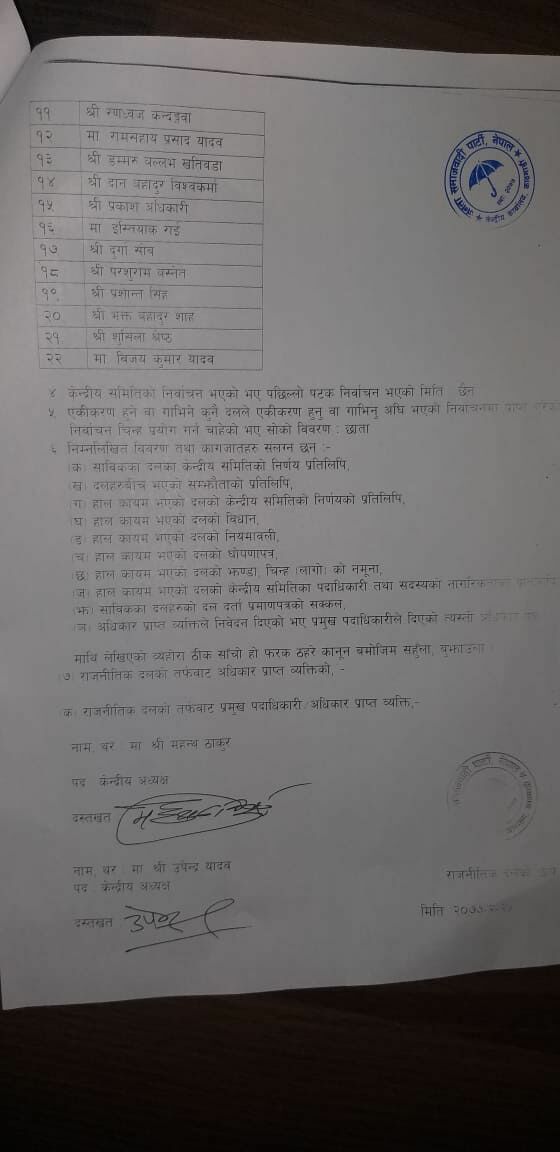 ११ श्री रणध्वज कन्दङवा
१२ मा रामसहाय प्रसाद यादव
१३ श्री डम्मरु बल्लभ खतिवडा
१४ श्री दान बहादुर विश्वकर्मा
१५ श्री प्रकाश अधिकारी
१६ मा इस्तियाक राई
१७ श्री दुर्गा सोब
१८ श्री परशुराम बस्नेत
१९ श्री प्रशान्त सिंह
२० श्री भक्त बहादुर शाह
२१ श्री शुसिला श्रेष्ठ
२२ मा बिजय कुमार यादव
जनता समाजवादी पार्टी, नेपाल
केन्द्रीय कार्यालय
४ केन्द्रीय समितिको निर्वाचन भएको भए पछिल्लो पटक निर्वाचन भएको मिति छैन
५ एकीकरण हुने वा गाभिने कुनै दलले एकीकरण हुनु वा गाभिनु अघि भएको निर्वाचनमा प्राप्त
निर्वाचन चिन्ह प्रयोग गर्न चाहेको भए सोको विवरण : छाता
६ निम्नलिखित विवरण तथा कागजातहरु सलग्न छन :-
(क) साविकका दलका केन्द्रीय समितिको निर्णय प्रतिलिपि,
(ख) दलहरुबीच भएको सम्झौताको प्रतिलिपि,
(ग) हाल कायम भएको दलको केन्द्रीय समितिको निर्णयको प्रतिलिपि,
(घ) हाल कायम भएको दलको विधान,
(ङ) हाल कायम भएको दलको नियमावली,
(च) हाल कायम भएको दलको घोषणापत्र,
(छ) हाल कायम भएको दलको झण्डा, चिन्ह (लोगो) को नमूना,
(ज) हाल कायम भएको दलको केन्द्रीय समितिका पदाधिकारी तथा सदस्यका नागरिकताका प्रतिलिपि
(झ) साविकका दलहरुको दल दर्ता प्रमाणपत्रको सक्कल,
(ञ) अधिकार प्राप्त व्यक्तिले निवेदन दिएको भए प्रमुख पदाधिकारीले दिएको त्यस्तो अधिकार पत्र
माथि लेखिएको व्यहोरा ठीक साँचो हो फरक ठहरे कानून बमोजिम सहुँला, बुझाउला ।
(७) राजनीतिक दलको तर्फबाट अधिकार प्राप्त व्यक्तिको, -
(क) राजनीतिक दलको तर्फबाट प्रमुख पदाधिकारी/अधिकार प्राप्त व्यक्ति,-
नाम, थर मा श्री महन्थ ठाकुर
पद केन्द्रीय अध्यक्ष
दस्तखत
नाम, थर : मा श्री उपेन्द्र यादव
पद : केन्द्रीय अध्यक्ष
राजनीतिक दलको छाप
दस्तखत उपेन्द्र
मिति २०७७